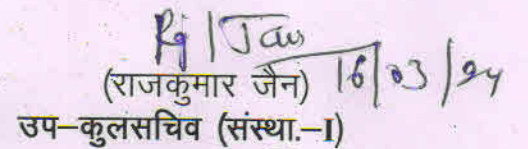 (राजकुमार जैन) 16/03/24
उप–कुलसचिव (संस्था.–I)